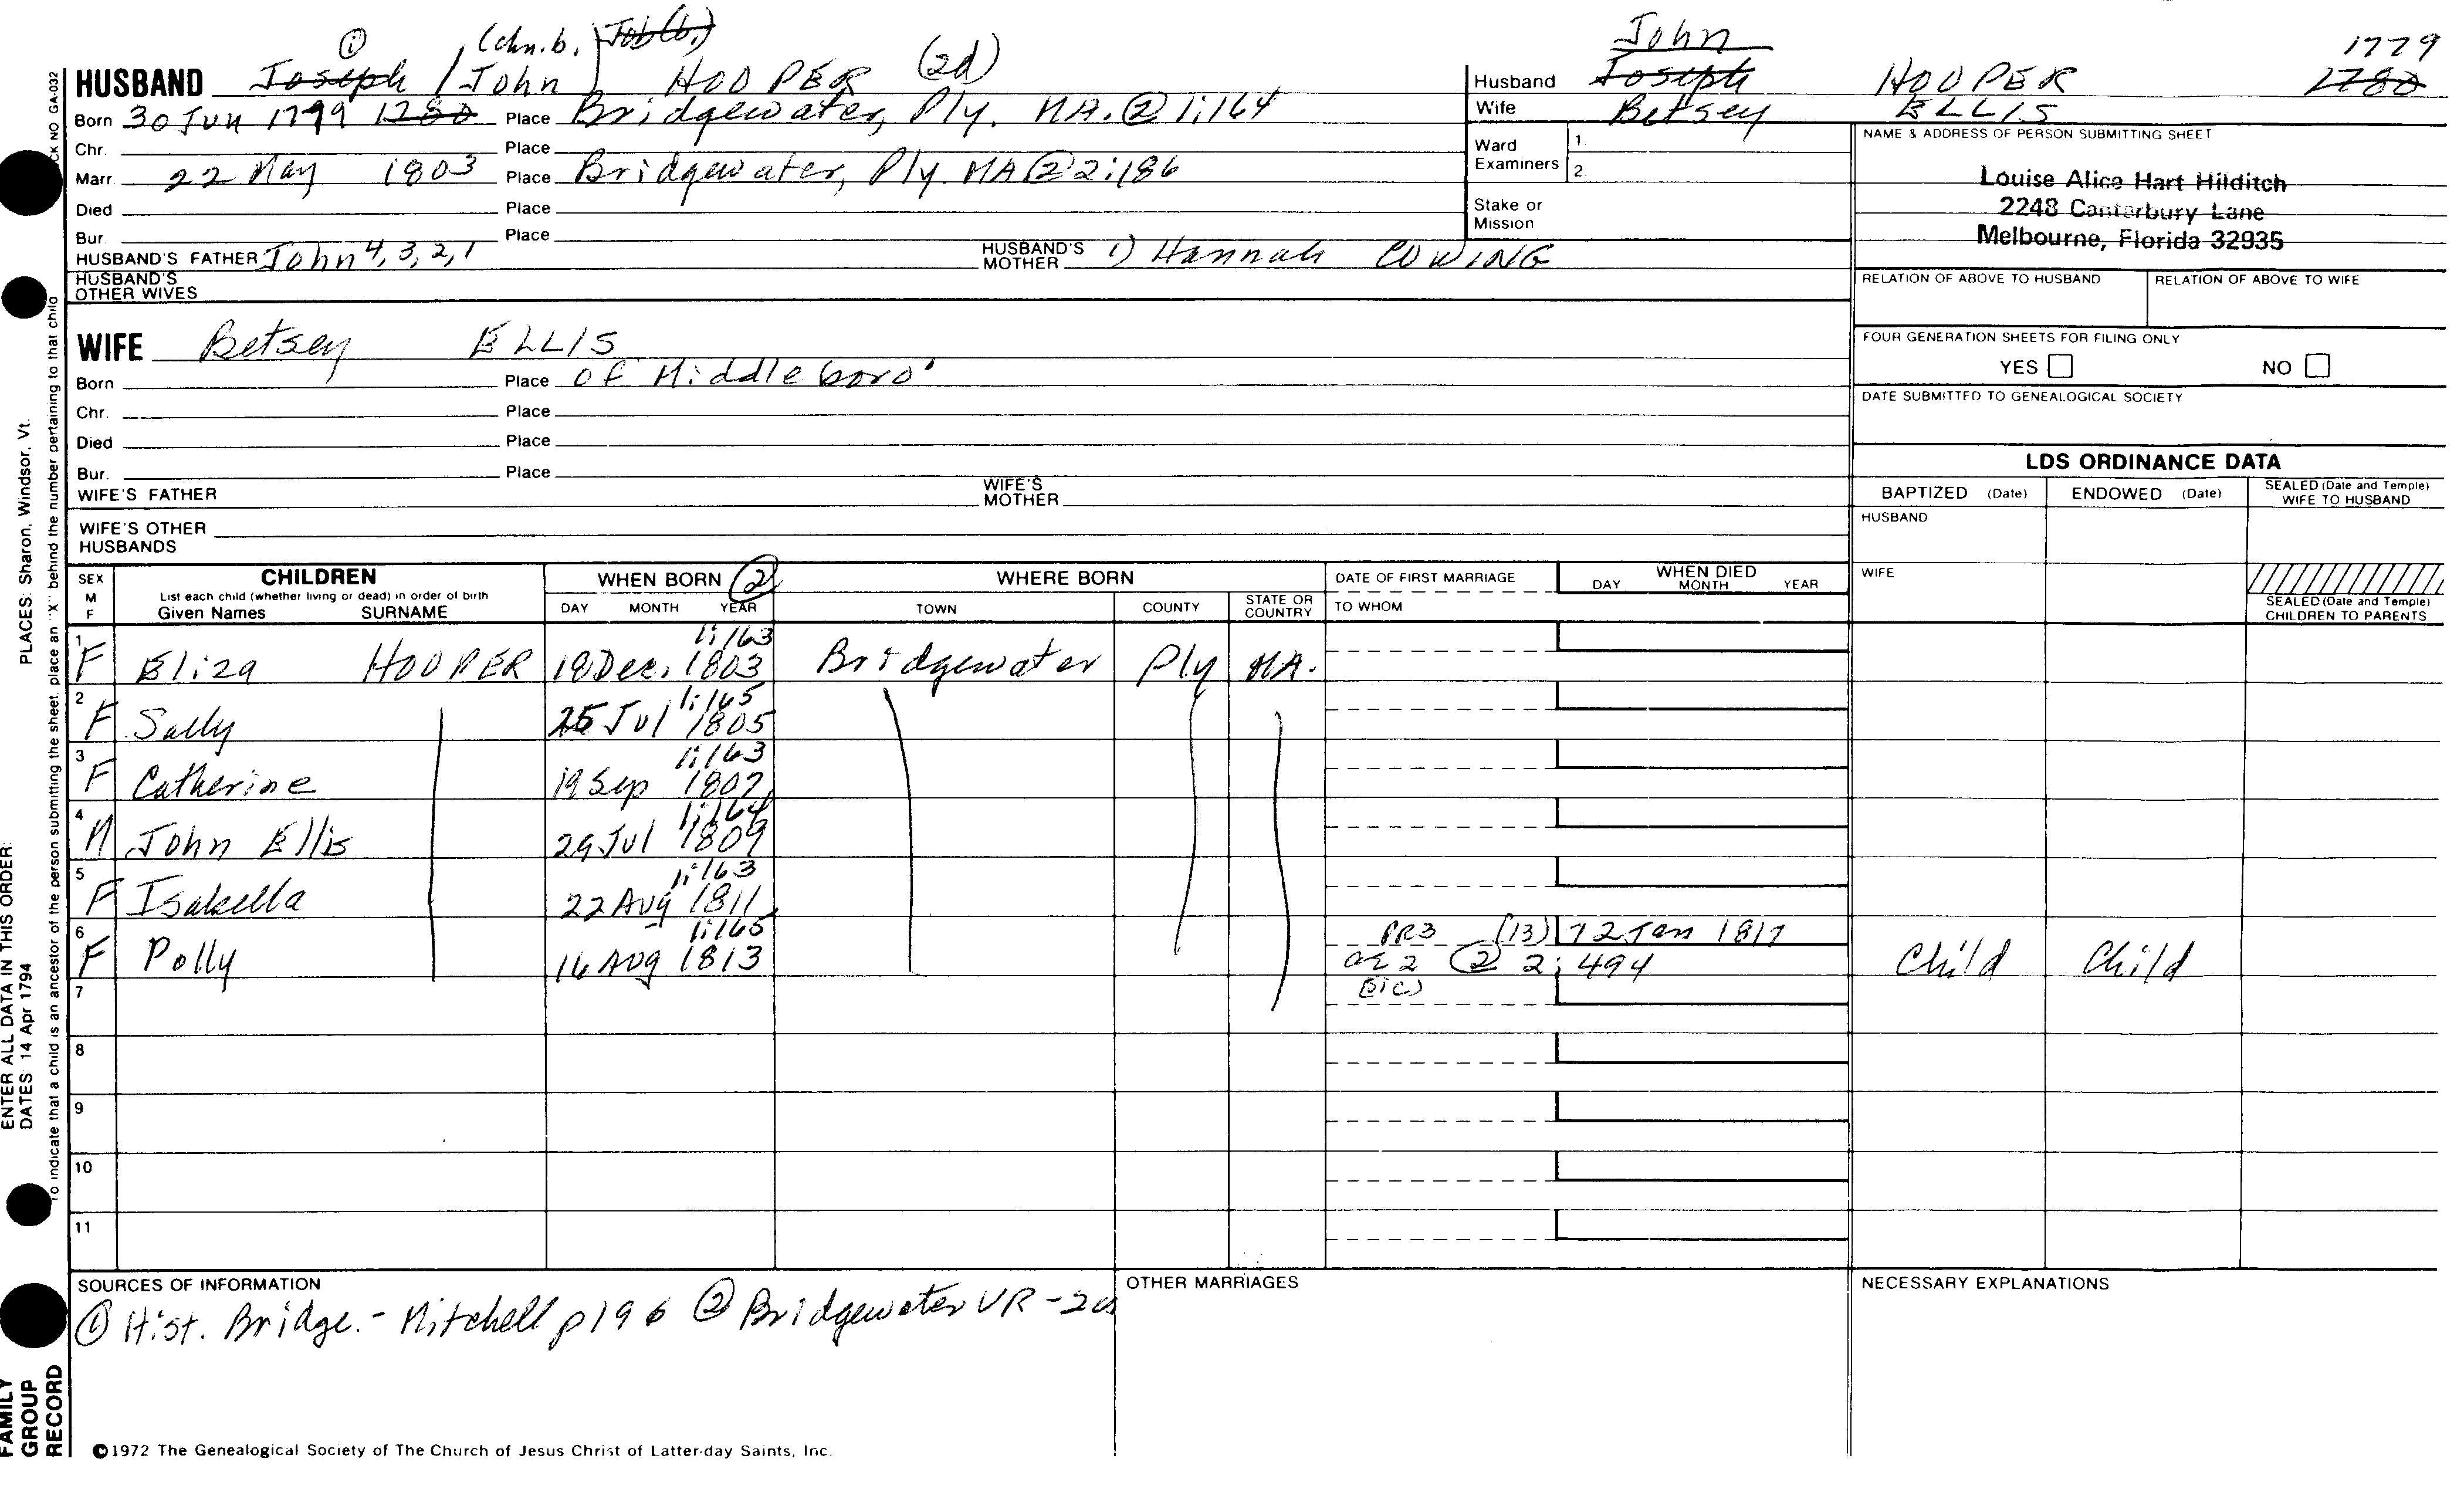 (chn.b. Job(b.)
① Joseph / John HOOPER (2d)
HUSBAND
Born 30 Jun 1779 1780 Place Bridgewater, Ply. MA. ② 1:164
Chr. Place
Marr. 22 May 1803 Place Bridgewater, Ply MA ② 2:186
Died Place
Bur. Place
HUSBAND'S FATHER John 4,3,2,1 HUSBAND'S MOTHER 1) Hannah COWING
HUSBAND'S OTHER WIVES
John 1779
Husband Joseph HOOPER 1780
Wife Betsey ELLIS
Ward Examiners 1. 2.
Stake or Mission
NAME & ADDRESS OF PERSON SUBMITTING SHEET
Louise Alice Hart Hilditch
2248 Canterbury Lane
Melbourne, Florida 32935
RELATION OF ABOVE TO HUSBAND RELATION OF ABOVE TO WIFE
FOUR GENERATION SHEETS FOR FILING ONLY
YES NO
DATE SUBMITTED TO GENEALOGICAL SOCIETY
WIFE Betsey ELLIS
Born Place of Middleboro'
Chr. Place
Died Place
Bur. Place
WIFE'S FATHER WIFE'S MOTHER
WIFE'S OTHER HUSBANDS
LDS ORDINANCE DATA
BAPTIZED (Date) ENDOWED (Date) SEALED (Date and Temple) WIFE TO HUSBAND
HUSBAND
WIFE
SEALED (Date and Temple) CHILDREN TO PARENTS
SEX M F
CHILDREN
List each child (whether living or dead) in order of birth
Given Names SURNAME
WHEN BORN ②
DAY MONTH YEAR
WHERE BORN
TOWN COUNTY STATE OR COUNTRY
DATE OF FIRST MARRIAGE
TO WHOM
WHEN DIED
DAY MONTH YEAR
1:163
1 F Eliza HOOPER 18 Dec. 1803 Bridgewater Ply MA.
1:165
2 F Sally 25 Jul 1805
1:163
3 F Catherine 19 Sep 1807
1:164
4 M John Ellis 29 Jul 1809
1:163
5 F Isabella 22 Aug 1811
1:165 PR3 (13) 12 Jan 1817
6 F Polly 16 Aug 1813 ae 2 ② 2:494 Child Child
7 (sic)
8
9
10
11
SOURCES OF INFORMATION
① Hist. Bridge. - Mitchell p196 ② Bridgewater VR -
OTHER MARRIAGES
NECESSARY EXPLANATIONS
©1972 The Genealogical Society of The Church of Jesus Christ of Latter-day Saints, Inc.
FAMILY
GROUP
RECORD
ENTER ALL DATA IN THIS ORDER:
DATES 14 Apr 1794 PLACES: Sharon, Windsor, Vt.
To indicate that a child is an ancestor of the person submitting the sheet, place an "X" behind the number pertaining to that child
CK NO GA-032